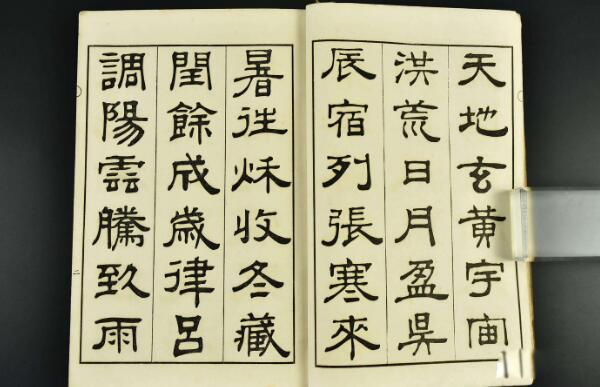 天地玄黃宇宙
洪荒日月盈昃
辰宿列張寒來
暑往秌收冬藏
閏餘成歲律呂
調陽雲騰致雨
二